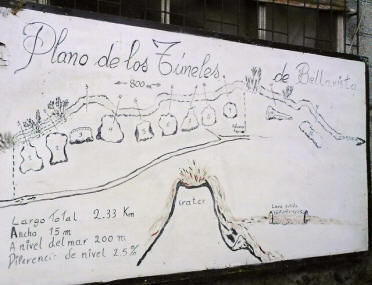 Plano de los Túneles. de Bellavista
800m
crater
Largo Total 2.33 Km
Ancho 15 m
A nivel del mar 200 m
Diferenci de nivel 2.5%